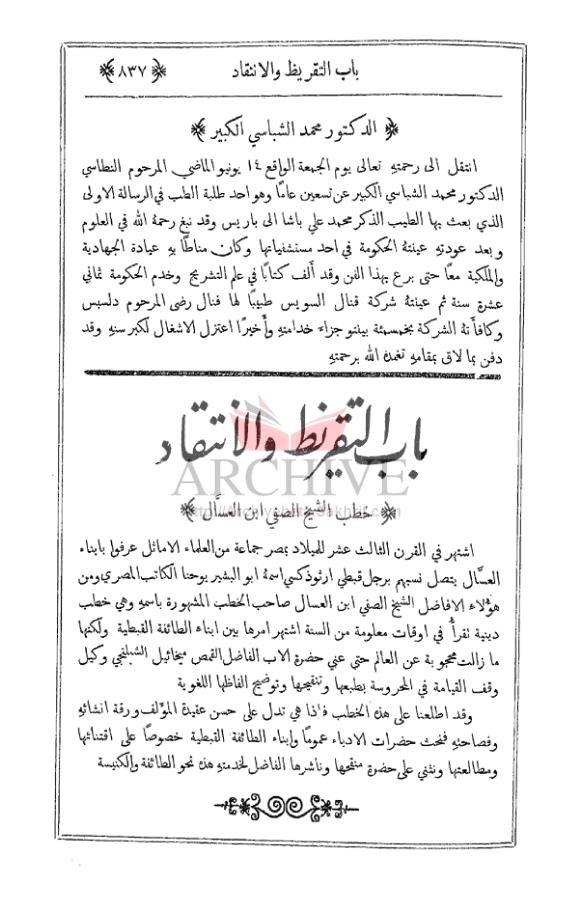 باب التقريظ والانتقاد
﴿٨٣٧﴾
﴿ الدكتور محمد الشباسي الكبير ﴾
انتقل الى رحمتهِ تعالى يوم الجمعة الواقع ١٤ يونيو الماضي المرحوم النطاسي
الدكتور محمد الشباسي الكبير عن تسعين عامًا وهو احد طلبة الطب في الرسالة الاولى
الذي بعث بها الطيب الذكر محمد علي باشا الى باريس وقد نبغ رحمهُ الله في العلوم
وبعد عودتهِ عينتهُ الحكومة في احد مستشفياتها وكان مناطًا بهِ عيادة الجهادية
والملكية معًا حتى برع بهذا الفن وقد ألف كتابًا في علم التشريح وخدم الحكومة ثماني
عشرة سنة ثم عينتهُ شركة قنال السويس طبيبًا لها فنال رضى المرحوم دلسبس
وكافأتهُ الشركة بخمسمئة بينتو جزاء خدامتهِ وأخيرًا اعتزل الاشغال لكبر سنهِ وقد
دفن بما لاق بمقامهِ تغمدهُ الله برحمتهِ
باب التقريظ والانتقاد
ARCHIVE
﴿ خطب الشيخ الصفي ابن العسَّال ﴾
اشتهر في القرن الثالث عشر للميلاد بمصر جماعة من العلماء الاماثل عرفوا بابناء
العسَّال يتصل نسبهم برجل قبطي ارثوذكسي اسمهُ ابو البشير يوحنا الكاتب المصري ومن
هؤلاء الافاضل الشيخ الصفي ابن العسال صاحب الخطب المشهورة باسمهِ وهي خطب
دينية تقرأُ في اوقات معلومة من السنة اشتهر امرها بين ابناء الطائفة القبطية ولكنها
ما زالت محجوبة عن العالم حتى عني حضرة الاب الفاضل القمص ميخائيل الشبلنجي وكيل
وقف القيامة في المحروسة بطبعها وتنقيحها وتوضيح الفاظها اللغوية
وقد اطلعنا على هذه الخطب فاذا هي تدل على حسن عقيدة المؤلف ورقة انشائهِ
وفصاحتهِ فنحث حضرات الادباء عمومًا وابناء الطائفة القبطية خصوصًا على اقتنائها
ومطالعتها ونثني على حضرة منقحها وناشرها الفاضل لخدمتهِ هذه نحو الطائفة والكنيسة